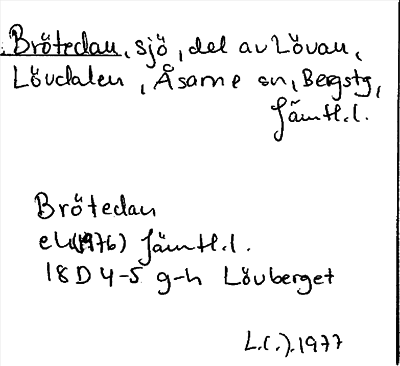 Brötedan, sjö, del av Lövan,
Lövdalen, Åsarne sn, Bergstg,
Jämtl.l.
Brötedan
ek(1976) Jämtl.l.
18 D 4-5 g-h Lövberget
L.(.).1977